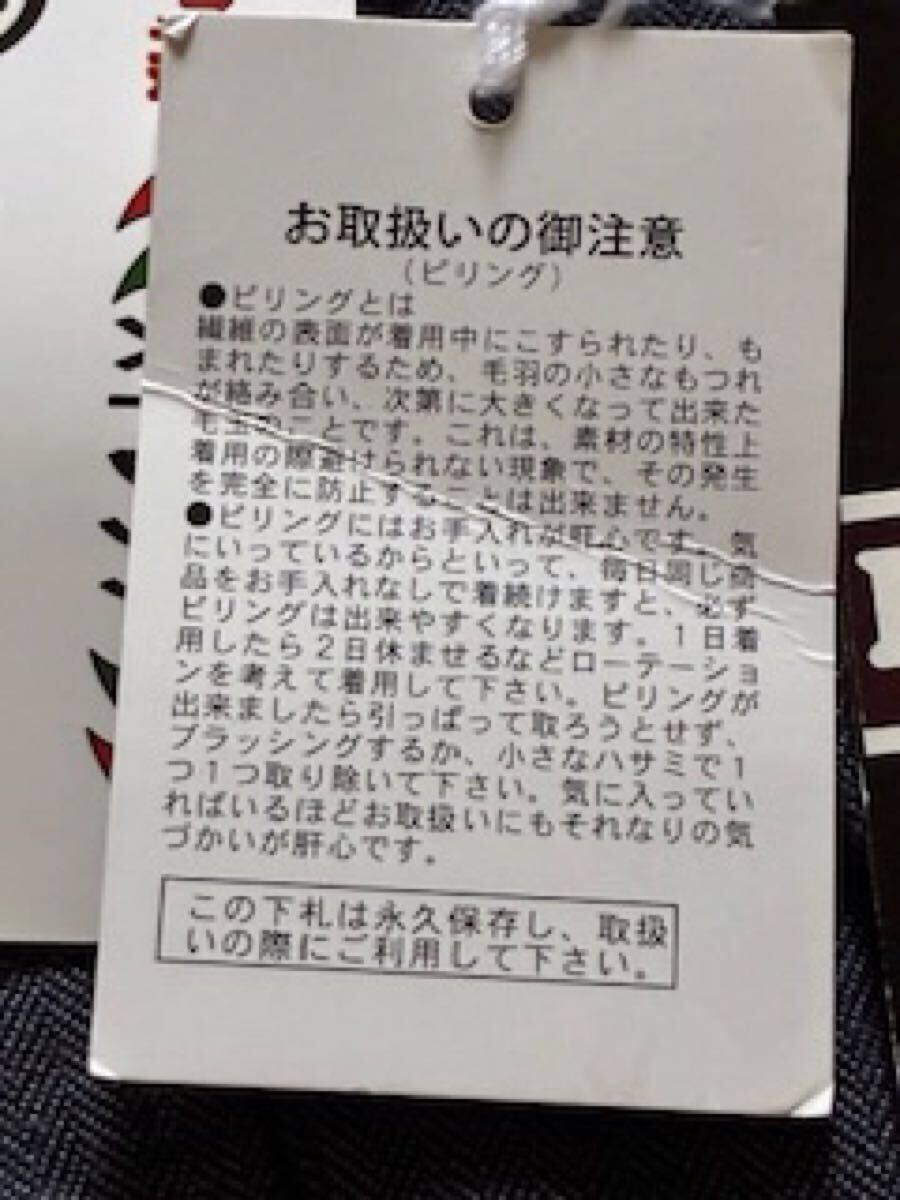 お取扱いの御注意
(ピリング)
●ピリングとは
繊維の表面が着用中にこすられたり、も
まれたりするため、毛羽の小さなもつれ
が絡み合い、次第に大きくなって出来た
毛玉のことです。これは、素材の特性上
着用の際避けられない現象で、その発生
を完全に防止することは出来ません。
●ピリングにはお手入れが肝心です。気
にいっているからといって、毎日同じ商
品をお手入れなしで着続けますと、必ず
ピリングは出来やすくなります。1日着
用したら2日休ませるなどローテーショ
ンを考えて着用して下さい。ピリングが
出来ましたら引っぱって取ろうとせず、
ブラッシングするか、小さなハサミで1
つ1つ取り除いて下さい。気に入ってい
ればいるほどお取扱いにもそれなりの気
づかいが肝心です。
この下札は永久保存し、取扱
いの際にご利用して下さい。